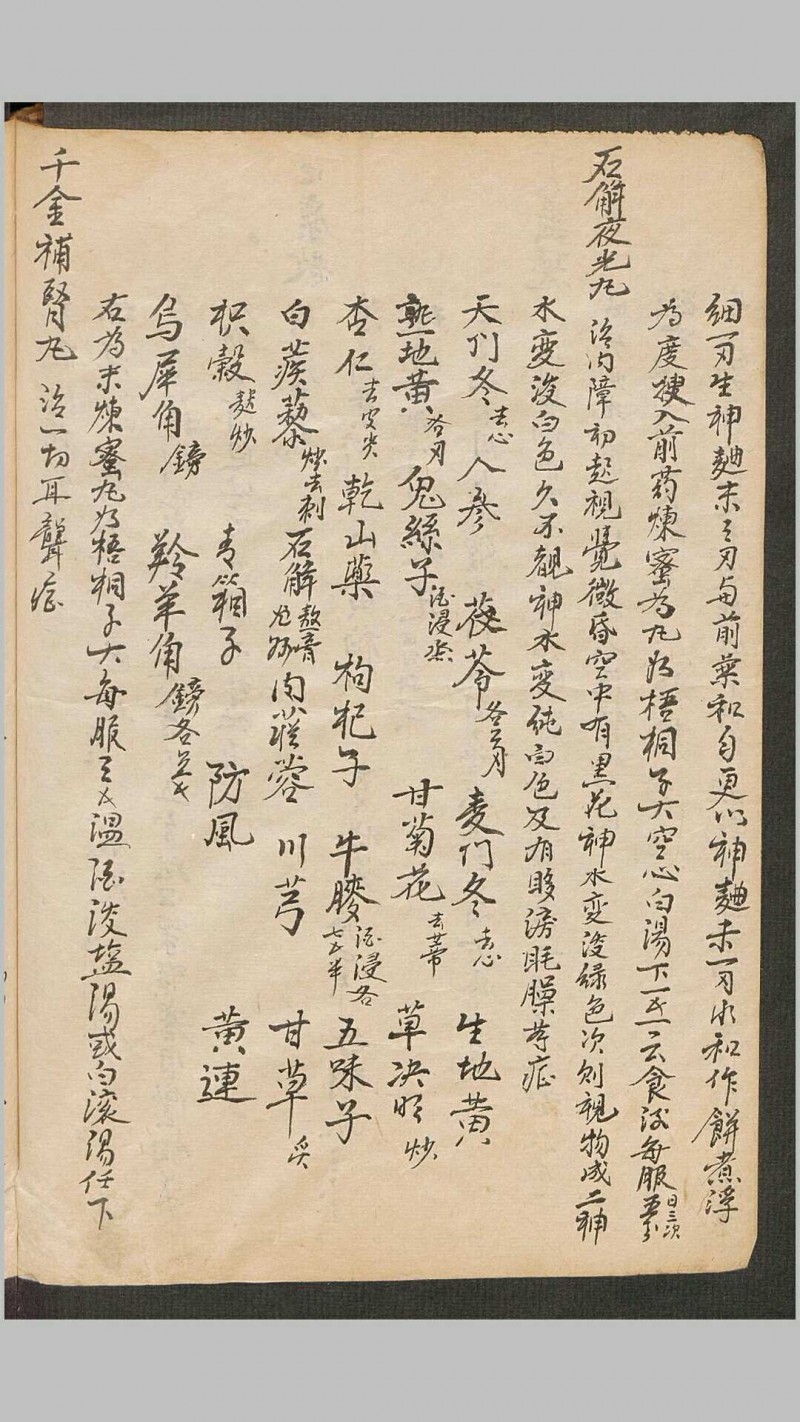 細一刃生神麯末三刃与前藥和匀更以神麯末一刃水和作餅煮浮
為度搜入前药煉蜜為丸如梧桐子大空心白湯下一云食後每服 日三次
石斛夜光丸 治内障初起視覺微昏空中有黑花神水变淡綠色次则視物成二神
水变淡白色久不覩神水变純白色及有眵淚眊臊等症
天门冬去心 人參 茯苓各二刃 麦门冬去心 生地黄
熟地黄各刃 兔絲子酒浸 甘菊花去蒂 草决明炒
杏仁去皮尖 乾山藥 枸杞子 牛膝酒浸各七五半 五味子
白蒺藜炒去刺 石斛 肉蓯蓉 川芎 甘草炙
枳殼麸炒 青箱子 防風 黄連
烏犀角鎊 羚羊角鎊各
右為末煉蜜丸如梧桐子大每服温酒淡塩湯或白滚湯任下
千金補腎丸 治一切耳聾症